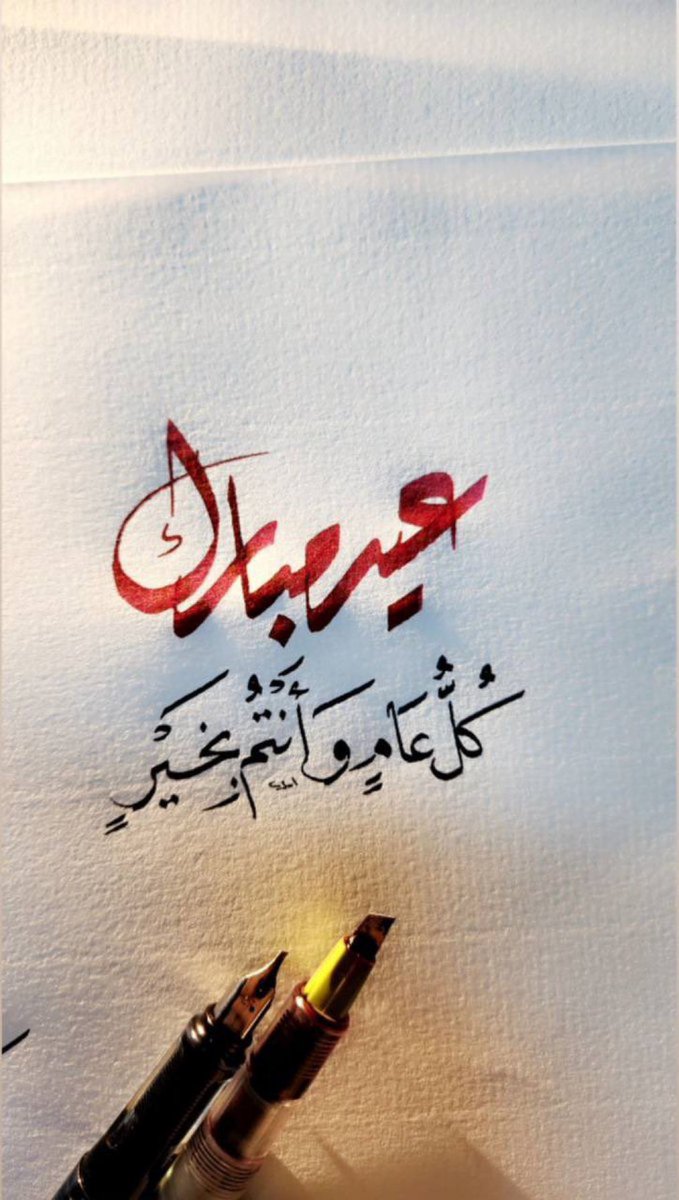 عيد مبارك
كُلُّ عَامٍ وَأَنْتُمْ بِخَيْرٍ